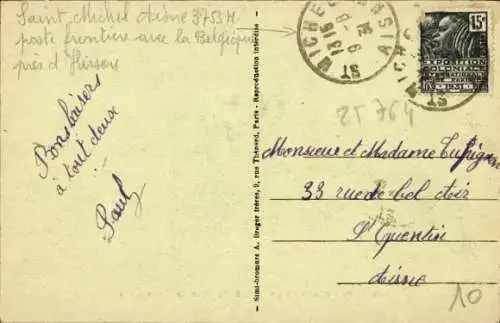 Saint Michel Aisne
poste frontière avec la Belgique
près d'Hirson
ST MICHEL AISNE
13 15
ST MICHEL
15c
EXPOSITION
COLONIALE
INTERNATIONALE
PARIS 1931
25764
Bons baisers
à tout deux
Paul
Simi-bromure A. Breger frères, 9, rue Thénard, Paris - Reproduction interdite
Monsieur et Madame
33 rue de bel Air
St Quentin
Aisne
10